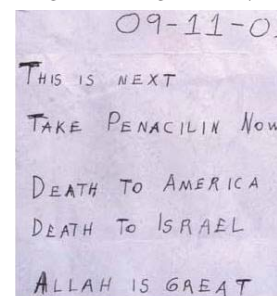 09-11-0
THIS IS NEXT
TAKE PENACILIN NOW
DEATH TO AMERICA
DEATH TO ISRAEL
ALLAH IS GREAT